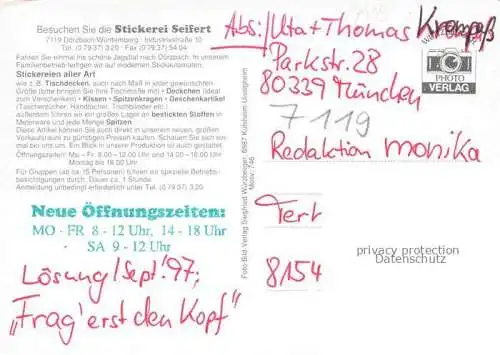 Besuchen Sie die Stickerei Seifert
7119 Dörzbach-Wertenberg · Industriestraße 10
Tel. (0 79 37) 3 20 · Fax (0 79 37) 54 04
Fahren Sie einmal ins schöne Jagsttal nach Dörzbach. In unserem
Familienbetrieb fertigen wir auf modernen Stickautomaten.
Stickereien aller Art
wie z. B. Tischdecken, auch nach Maß in jeder gewünschten
Größe (bitte bringen Sie Ihre Tischmaße mit) • Deckchen (ideal
zum Verschenken) • Kissen • Spitzenkragen • Geschenkartikel
(Taschentücher, Handtücher, Tischbänder etc.)
außerdem führen wir ein großes Lager an bestickten Stoffen in
Meterware und jede Menge Spitzen
Diese Artikel können Sie auch direkt in unserem neuen, großen
Verkaufsraum zu günstigen Preisen kaufen. Schauen Sie sich ein-
mal bei uns um. Ein Blick in unsere Produktion ist auch gestattet.
Öffnungszeiten: Mo – Fr. 8.00 – 12.00 Uhr und 14.00 – 18.00 Uhr
Montag bis 19.00 Uhr
Für Gruppen (ab ca. 15 Personen) führen wir spezielle Betriebs-
besichtigungen durch. Dauer ca. 1 Stunde.
Anmeldung unbedingt erforderlich unter Tel. (0 79 37) 3 20.
Neue Öffnungszeiten:
MO - FR 8 - 12 Uhr, 14 - 18 Uhr
SA 9 - 12 Uhr
Lösung/Sept'97;
„Frag' erst den Kopf"
Foto-Bild-Verlag Siegfried Würzberger, 6987 Külsheim-Uissigheim
Motiv: 746
Abs:/Uta + Thomas Krempeß
Parkstr. 28
80339 München
7119
PHOTO
VERLAG
Redaktion monika
Tert
8154
privacy protection
Datenschutz